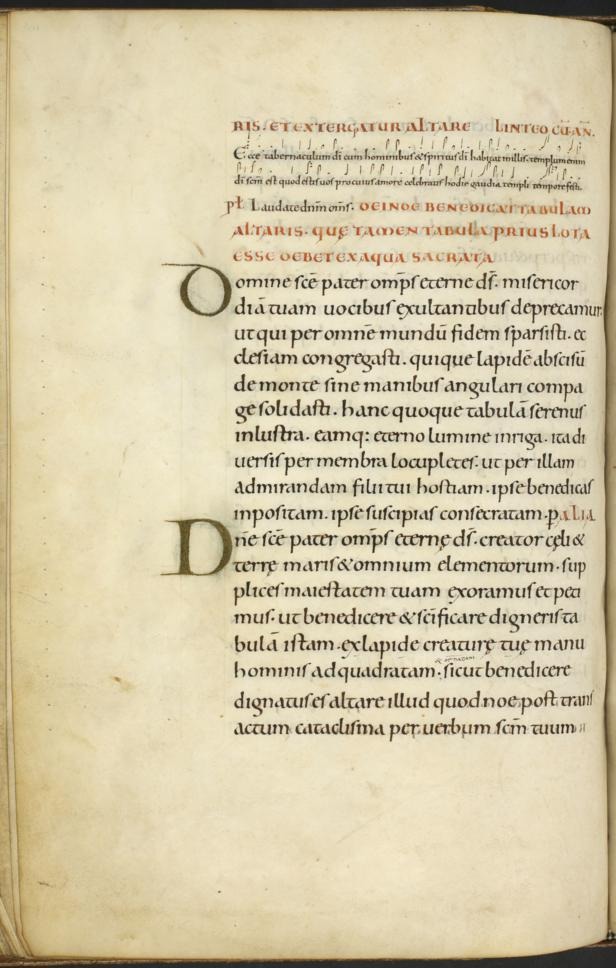 RIS. ET EXTERGATUR ALTARE LINTEO CŪ AN.
Ecce tabernaculum dī cum hominibus & spiritus dī habitat in illis. templum enim
dī scm̄ est quod estis vos pro cuius amore celebratis hodie gaudia templi tempore festi.
pł Laudate dnm̄ oms̄. DEINDE BENEDICAT TABULAM
ALTARIS. QUĘ TAMEN TABULA PRIUS LOTA
ESSE DEBET EX AQUA SACRATA
Domine scē pater omp̄s eterne ds̄. misericor
diā tuam uocibus exultantibus deprecamur.
ut qui per omnē mundū fidem sparsisti. ec
clesiam congregasti. quique lapidē abscisū
de monte sine manibus angulari compa
ge solidasti. hanc quoque tabulā serenus
inlustra. eamq: eterno lumine inriga. ita di
uersis per membra locupletes. ut per illam
admirandam filii tui hostiam. ipse benedicas
inpositam. ipse suscipias consecratam. ALIA
Dn̄e scē pater omp̄s eternę ds̄. creator cęli &
terrę maris & omnium elementorum. sup
plices maiestatem tuam exoramus et peti
mus. ut benedicere & scīficare digneris ta
bulā istam. ex lapide creaturę tuę manu
hominis adquadratam. sicut benedicere
dignatus es altare illud quod noe post trans
actum cataclisma per uerbum scm̄ tuum